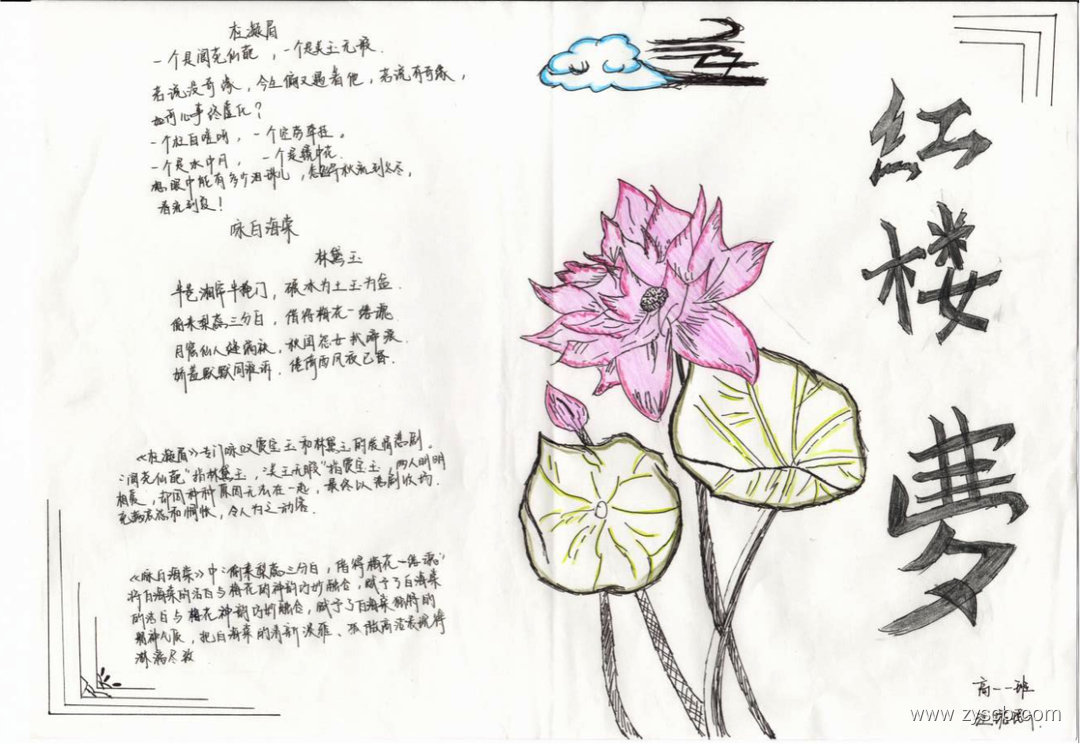 枉凝眉
一个是阆苑仙葩，一个是美玉无瑕．
若说没奇缘，今生偏又遇着他，若说有奇缘，
如何心事终虚化？
一个枉自嗟呀，一个空劳牵挂。
一个是水中月，一个是镜中花．
想眼中能有多少泪珠儿，怎经得秋流到冬尽，
春流到夏！
咏白海棠
林黛玉
半卷湘帘半掩门，碾冰为土玉为盆．
偷来梨蕊三分白，借得梅花一缕魂
月窟仙人缝缟袂，秋闺怨女拭啼痕．
娇羞默默同谁诉．倦倚西风夜已昏．
《枉凝眉》专门咏叹贾宝玉和林黛玉的爱情悲剧。
“阆苑仙葩”指林黛玉，“美玉无瑕”指贾宝玉，两人明明
相爱，却因种种原因无法在一起，最终以悲剧收场．
充满哀怨和惆怅，令人为之动容．
《咏白海棠》中“偷来梨蕊三分白，借得梅花一缕魂”
将白海棠的洁白与梅花的神韵巧妙融合，赋予了白海棠
的洁白与梅花神韵巧妙融合，赋予了白海棠独特的
精神气质，把白海棠的清新淡雅、孤傲高洁展现得
淋漓尽致
红楼梦
高一一班
www.zyscb.com